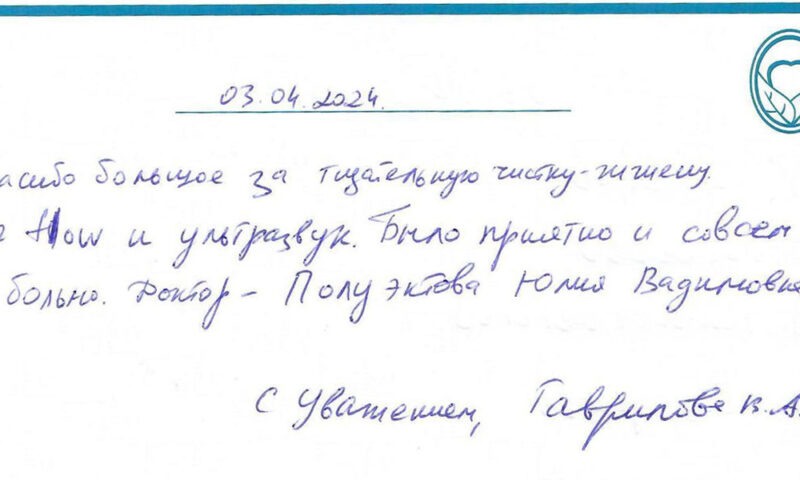 03.04.2024.
асибо большое за тщательную чистку-гигиену.
Flow и ультразвук. Было приятно и совсем
больно. Доктор – Полуэктова Юлия Вадимовна
С уважением, Гаврилова В.А.